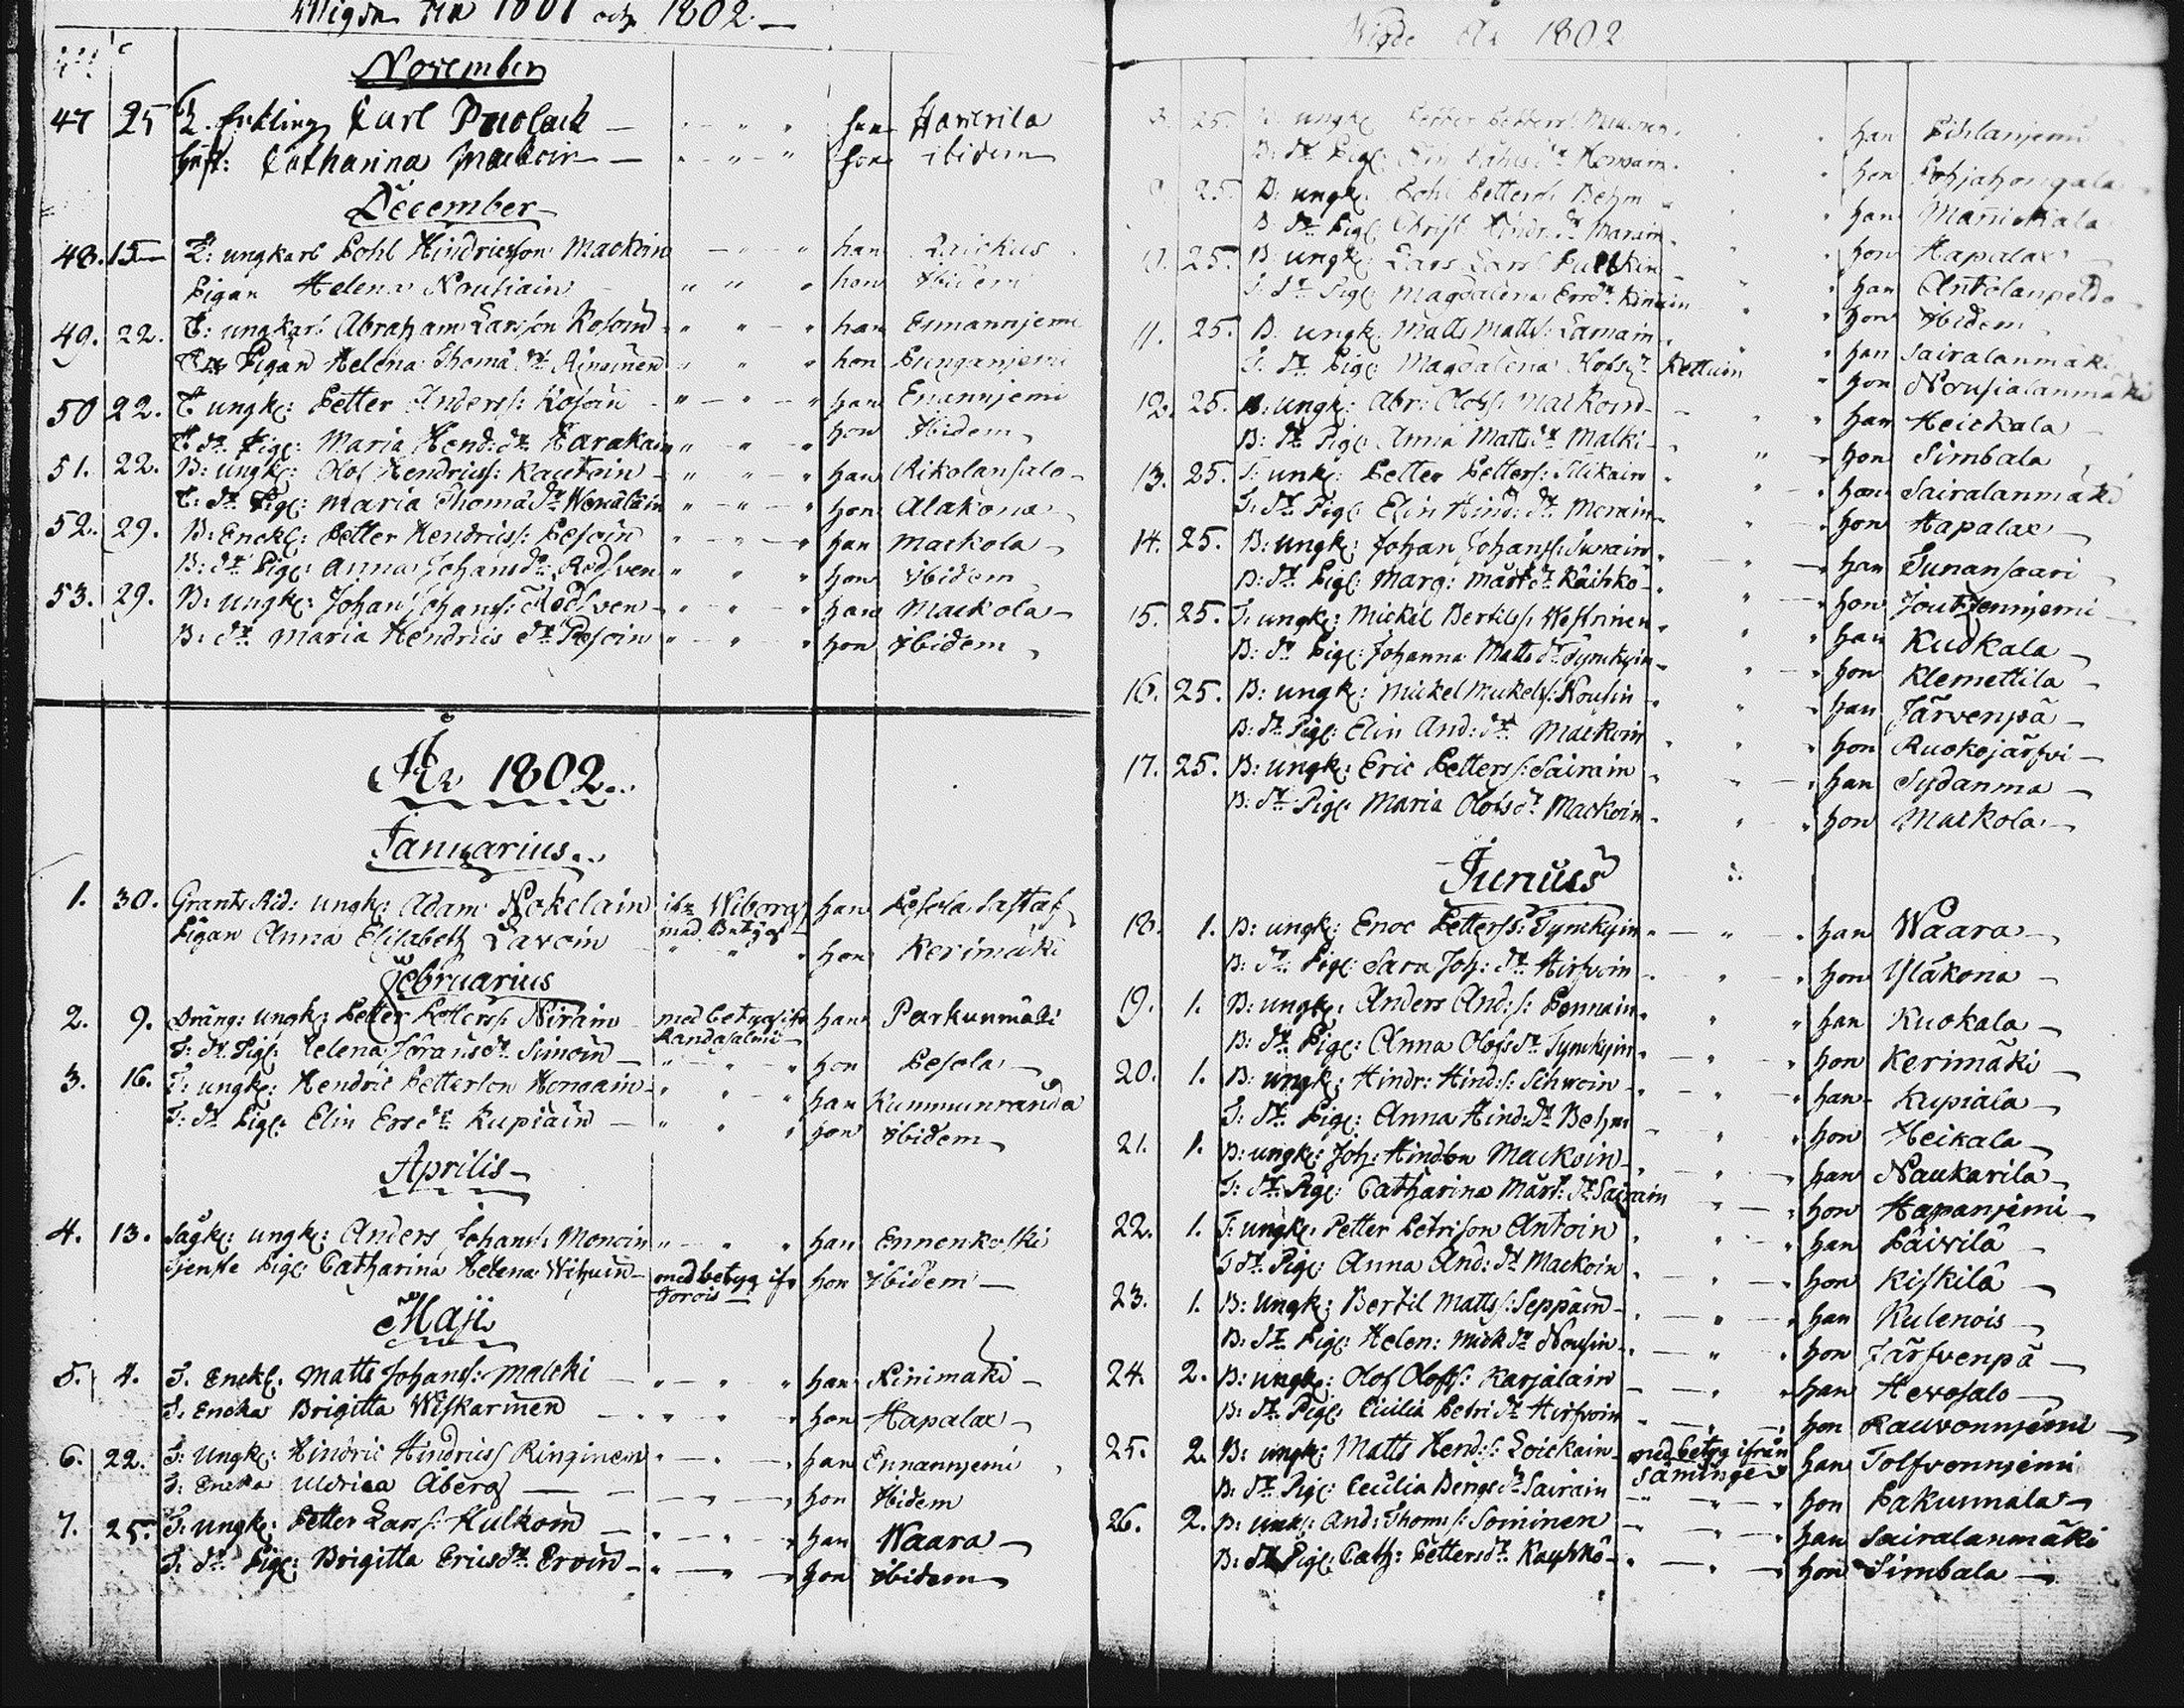 Wigde åren 1801 och 1802.
November
47 25 Enkling Carl Puolack — han Haverila
Hust: Catharina Mackoin — hon ibidem
December
48. 15 T: ungkarl Pohl Hindricsson Mackoin han Laickus
Pigan Helena Nousiain hon Ibidem
49. 22. T: ungkarl Abraham Larsson Kosoin han Enmannjemi
Pigan Helena Thomæ dr Rinoinen hon Punganjemi
50 22. T ungk: Petter Anderss: Kosoin han Enannjemi
T. dr Pig: Maria Hend: dr Karakain hon Ibidem
51. 22. B: ungk: Olof Hendricss: Rautoin han Rikolansalo
T: dr Pig: Maria Thomæ dr Wenäläin hon Alakona
52. 29. B: Enckl: Petter Hendricss: Pesoin han Mackola
B: dr Pig: Anna Johansdr Rodsven hon Ibidem
53. 29. B: Ungk: Johan Johanss: Rodsven han Mackola
B: dr Maria Hendrics dr Pesoin hon Ibidem
År 1802.
Januarius
1. 30. Grants Rid: ungk: Adam Nokelain ifr. Wiborg han Pesola
Pigan Anna Elisabeth Lavoin med Betyg hon Kerimäki
Februarius
2. 9. Dräng: ungk: Petter Petterss: Nirain med betyg ifr Randasalmi han Parkunmäki
T: dr Pig: Helena Jöransdr Simoin hon Pesola
3. 16. T: ungk: Hendric Petterson Honoain han Kummunranda
T: dr Pig: Elin Ersdr Kupiain hon Ibidem
Aprilis
4. 13. Sagk: ungk: Anders Johanss: Monoin han Ennenkoski
Tjenste Pig: Catharina Helena Wihuin med betyg ifr Jorois hon Ibidem
Maji
5. 4. T. Enckl. Matts Johanss: Malcki han Rinimäki
T. Encka Brigitta Wiskarinen hon Hapalax
6. 22. T: Ungk: Hindric Hindricss Ringinen han Ennannjemi
T: Encka Uldrica Åberg hon Ibidem
7. 25. T: ungk: Petter Larss: Kulkoin han Waara
T: dr Pig: Brigitta Ericsdr Ervin hon Ibidem
Wigde År 1802
25. ungk: Petter Petterss: han Pihlanjemi
B: dr Pig: Elin hon Pohjahongala
25. B: ungk: Pohl Petterss: Behm han Mannickala
B dr Pig: Christ: Hindr. dr hon Hapalax
25. B: ungk: Lars Larss: han Antolanpeldo
T: dr Pig: Magdalena Ersdr hon Ibidem
11. 25. B. ungk: Matts Matts: Lamain han Sairalanmäki
T. dr Pig: Magdalena Kettuin hon Nousialanmäki
12. 25. B: ungk: Abr: Olofs: Mackoin han Heickala
B: dr Pig: Anna Matts dr Malki hon Simbala
13. 25. T: unk: Petter Petters: Silikain han Sairalanmäki
T: dr Pig: Elin Hind: dr Morain hon Hapalax
14. 25. B: ungk: Johan Johanss: Sunain han Sunansaari
B: dr Pig: Marg: Mårt dr Räihkö hon Joutzennjemi
15. 25. T: ungk: Mickel Bertils: Westninen han Kuokala
B: dr Pig: Johanna Matts dr Tynckyin hon Klemettila
16. 25. B: ungk: Mickel Mickels: Nousin han Järvenpä
B: dr Pig: Elin And: dr Mackoin hon Ruokojärfvi
17. 25. B: ungk: Eric Petterss: Sairain han Sydanma
B: dr Pig: Maria Olofs dr Mackoin hon Mackola
Junius
18. 1. B: ungk: Enoc Petterss: Tynckyin han Waara
B: dr Pig: Sara Joh: dr Hirfvoin hon Yläkona
19. 1. B: ungk: Anders And: s: Pennain han Kuokala
B: dr Pig: Anna Olofsdr Tynckyin hon Kerimäki
20. 1. B: ungk: Hindr: Hind: s: Sihvoin han Kupiala
T: dr Pig: Anna Hind: dr Behm hon Heikala
21. 1. B: ungk: Joh: Hindson Mackoin han Naukarila
T: dr Pig: Catharina Mårt: dr Sairain hon Hapanjemi
22. 1. T: ungk: Petter Petrison Antoin han Päivilä
T dr Pig: Anna And: dr Mackoin hon Kiskilä
23. 1. B: Ungk: Bertil Matts: Seppäin han Kulenois
B: dr Pig: Helen: Mick dr Nousin hon Järfvenpä
24. 2. B: ungk: Olof Olofs: Karjalain han Hevosalo
B: dr Pig: Cicilia Petri dr Hirfvoin hon Rauvonnjemi
25. 2. B: ungk: Matts Hend: s: Loickain med betyg ifrån Säminge han Tolfvonnjemi
B: dr Pig: Cecilia Bengs dr Sairain hon Pakunnala
26. 2. B: ungk: And: Thoms: Soininen han Sairalanmäki
B: dr Pig: Cath: Pettersdr Rayhkö hon Simbala